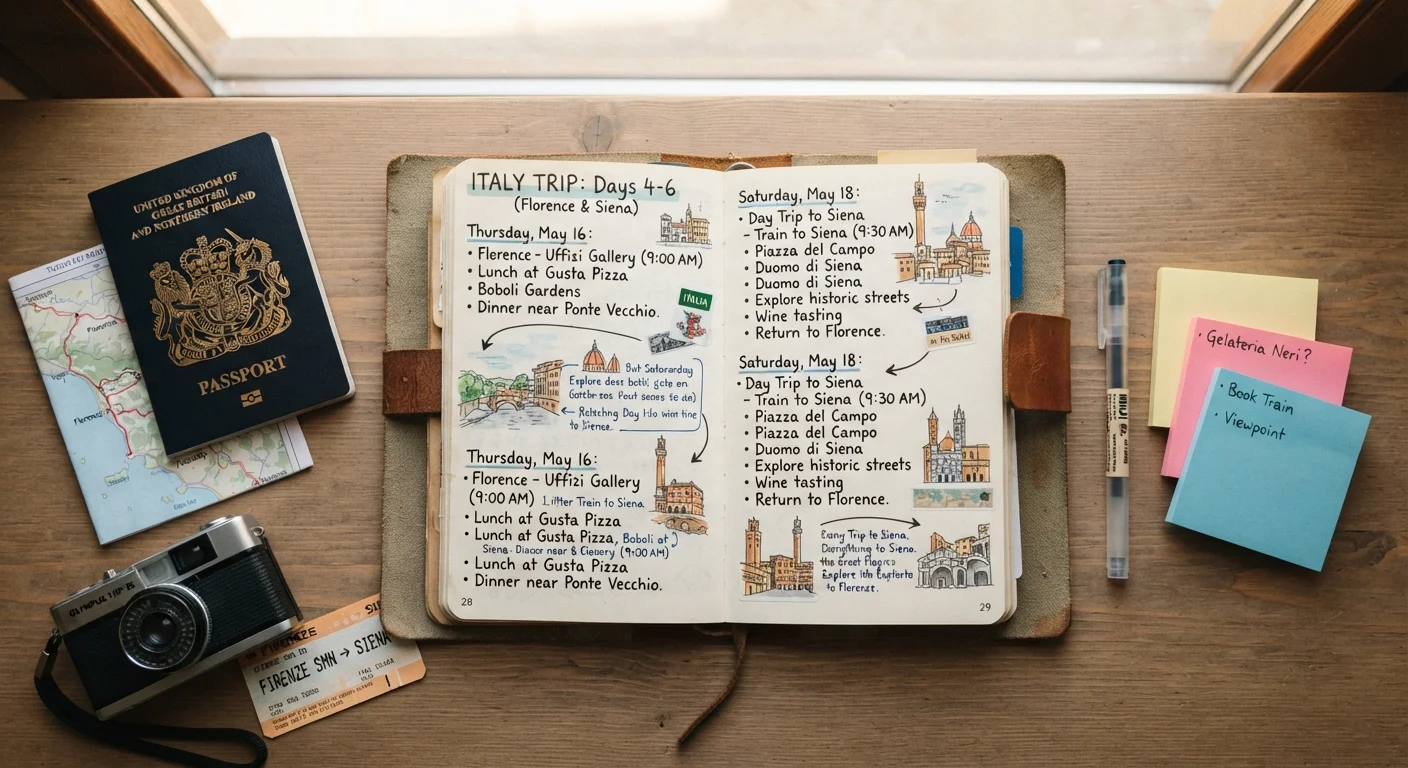 UNITED KINGDOM OF
GREAT BRITAIN
AND NORTHERN IRELAND
PASSPORT
FIRENZE SMN → SIENA
ITALY TRIP: Days 4-6
(Florence & Siena)
Thursday, May 16:
• Florence - Uffizi Gallery (9:00 AM)
• Lunch at Gusta Pizza
• Boboli Gardens
• Dinner near Ponte Vecchio.
ITALIA
Explore
to
Thursday, May 16:
• Florence - Uffizi Gallery
(9:00 AM) Train to Siena
• Lunch at Gusta Pizza
• Lunch at Gusta Pizza, Boboli at
Siena. near & (9:00 AM)
• Lunch at Gusta Pizza
• Dinner near Ponte Vecchio.
28
Saturday, May 18:
• Day Trip to Siena
- Train to Siena (9:30 AM)
• Piazza del Campo
• Duomo di Siena
• Duomo di Siena
• Explore historic streets
• Wine tasting
• Return to Florence.
Saturday, May 18:
• Day Trip to Siena
- Train to Siena (9:30 AM)
• Piazza del Campo
• Piazza del Campo
• Duomo di Siena
• Explore historic streets
• Wine tasting
• Return to Florence.
Trip to Siena,
to Siena.
the
Explore
to Florence.
29
• Gelateria Neri?
• Book Train
• Viewpoint